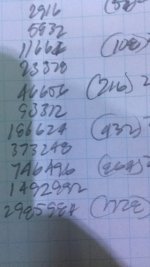 2916 (54)²
5832
11664 (108)²
23328
46656 (216)²
93312
186624 (432)²
373248
746496 (864)²
1492992
2985984 (1728)